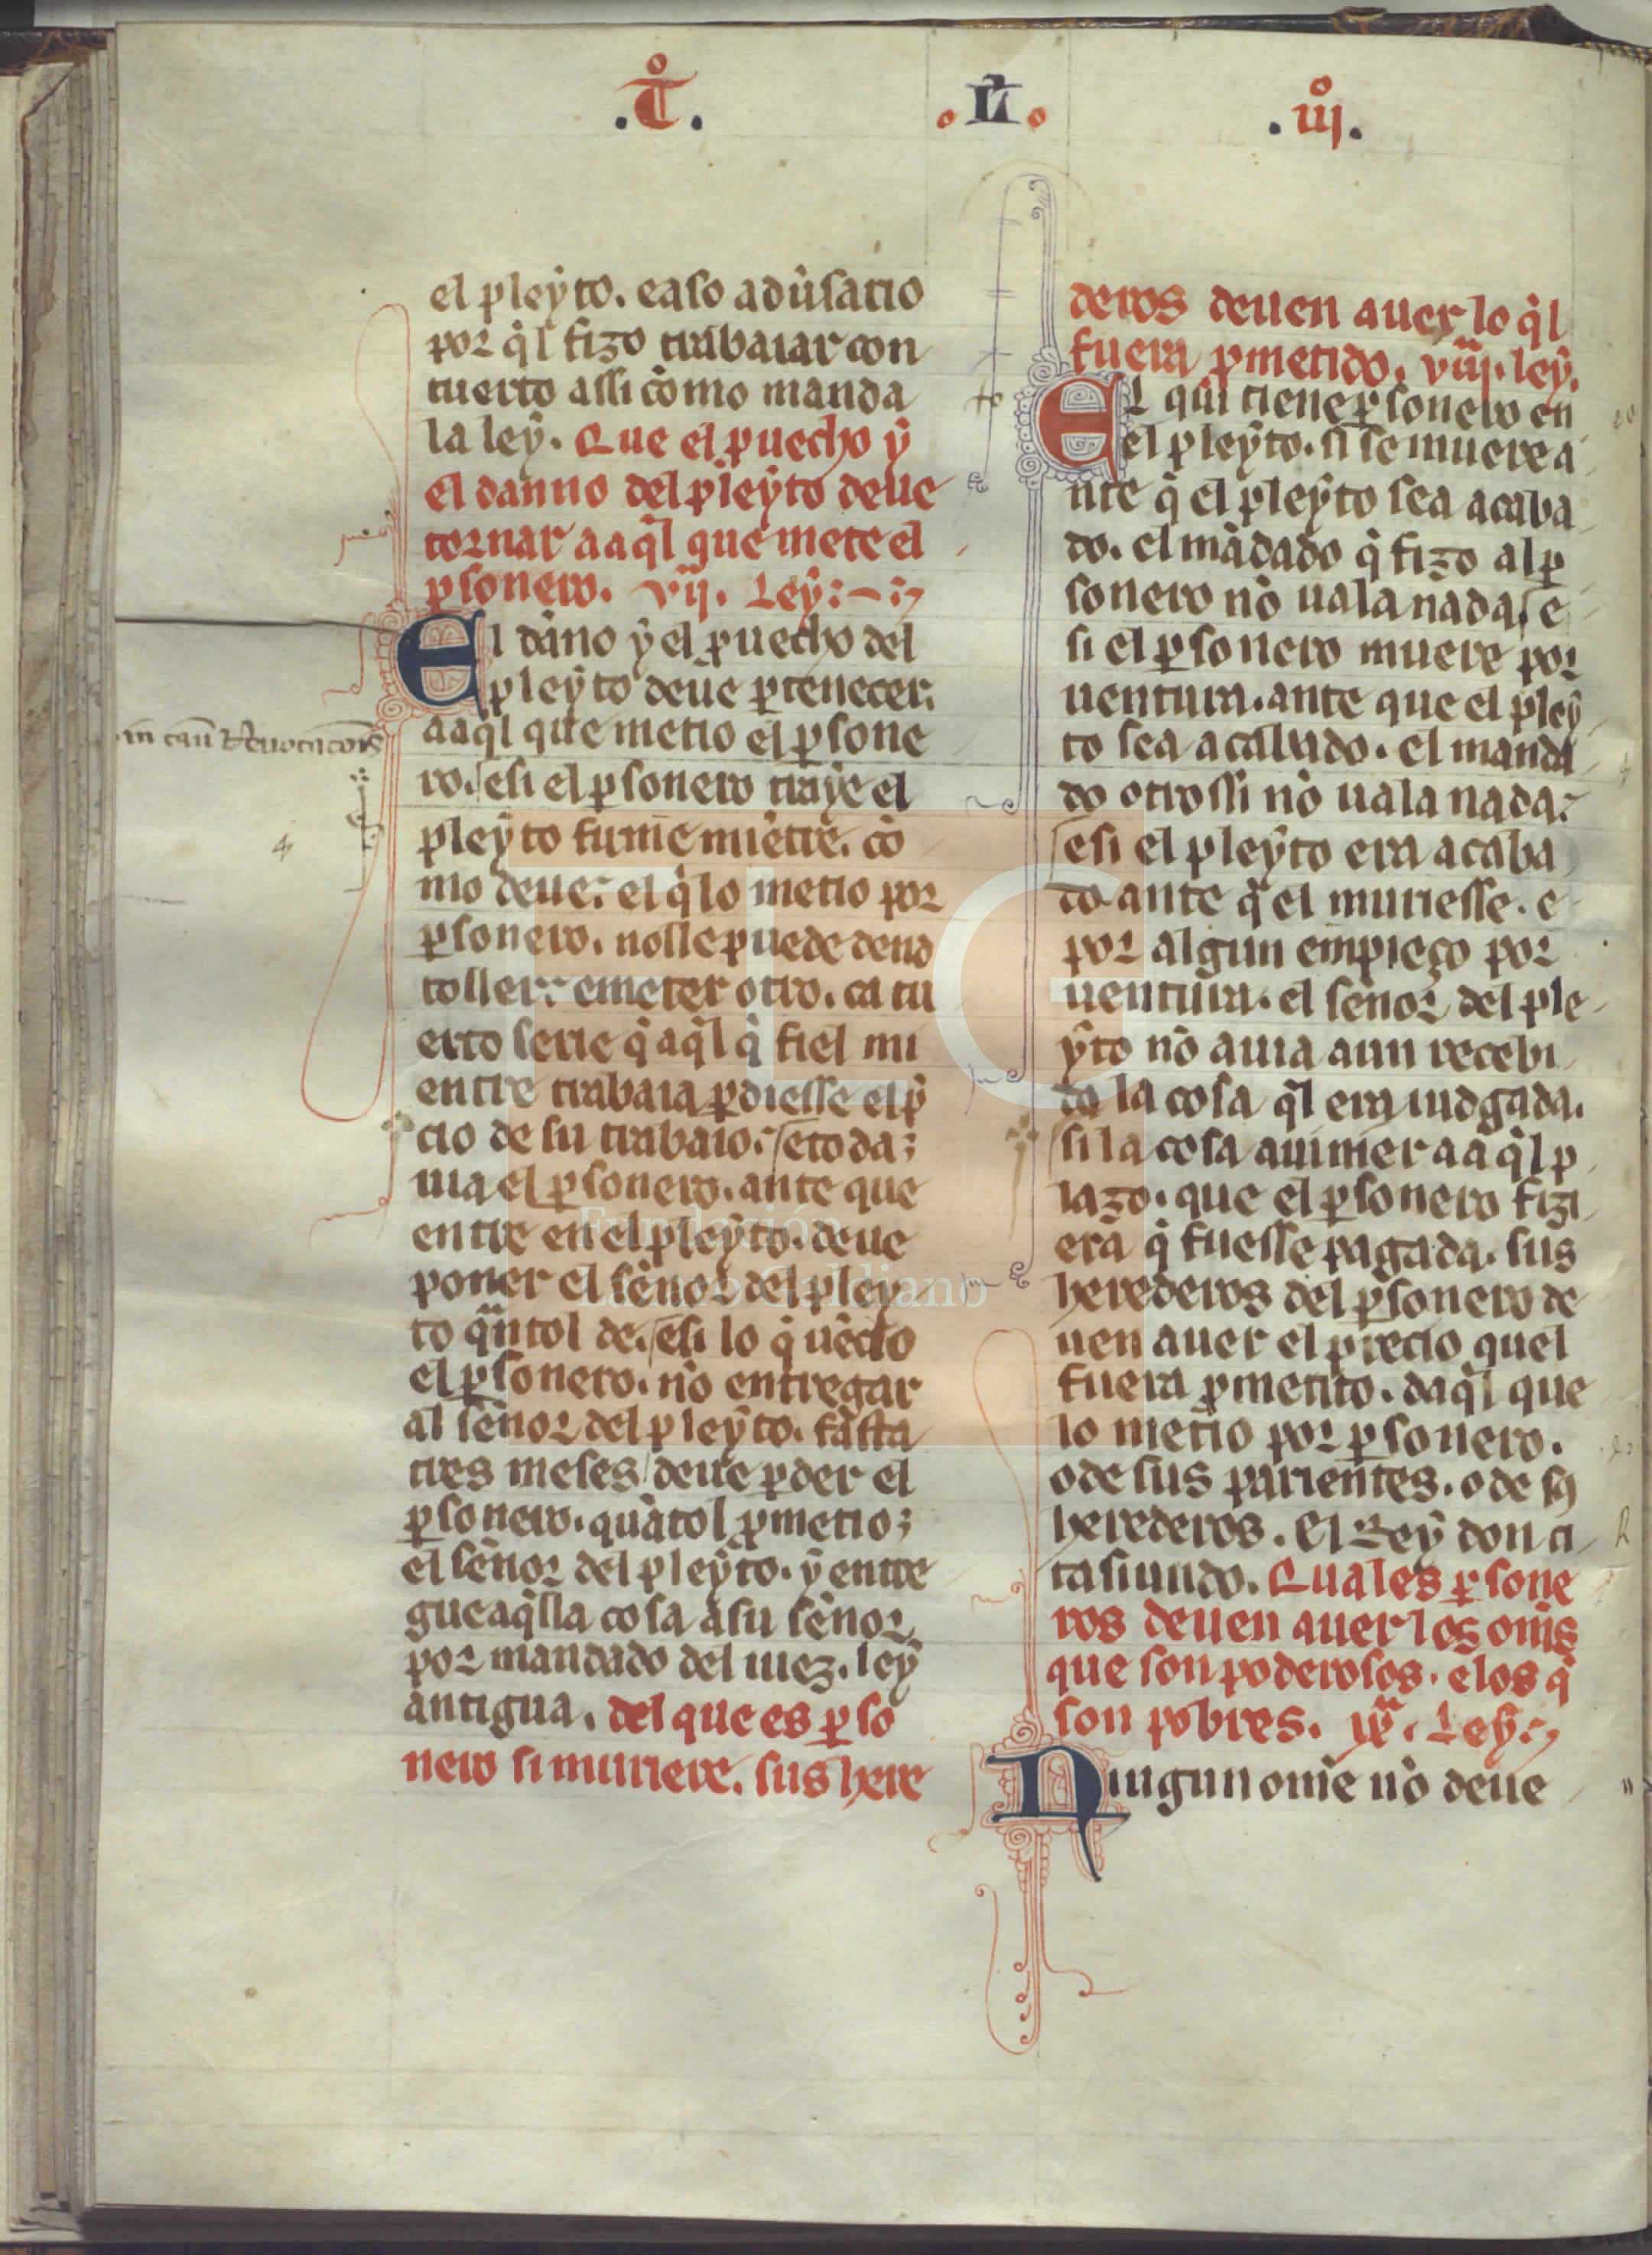 .T͛. .L̃. .iijͦ.
el pleẏto. e aso adũsario
por q̃l fizo trabaiar con
tuerto assi como manda
la leẏ. Que el puecho ẏ
el danno del pleẏto deue
tornar a aq̃l que mete el
p̱sonero. vijͣ. Leẏ:~:
El dãno ẏ el puecho del
pleẏto deue p̱tenecer.
a aq̃l que metio el p̱sone
ro. e si el p̱sonero traẏe el
pleẏto firme miẽtre. co
mo deue: el q̃ lo metio por
p̱sonero. nolle puede deno
toller: e meter otro. ca tu
erto serie q̃ aq̃l q̃ fiel mi
entre trabaia p̱diesse el p̃
cio de su trabaio: e toda;
uia el p̱sonero. ante que
entre en el pleẏto. deue
poner el sẽnor del pleẏ
to q̃ntol de. e si lo q̃ uẽcio
el p̱sonero. nõ entregar
al sẽnor del pleẏto. fasta
tres meses deue p̱der el
p̱sonero. quãtol pmetio;
el sẽnor del pleẏto. ẏ entre
gue aq̃lla cosa a su sẽnor
por mandado del iuez. leẏ
antigua. del que es p̱so
nero si muriere. sus here
in cau͂ Reuocacõis
deros deuen auer lo q̃l
fuera pmetido. viijͣ. leẏ.
El qui tiene p̱sonero en
el pleẏto. si se muere a
nte q̃ el pleẏto sea acaba
do. el mãdado q̃ fizo al p̱
sonero nõ uala nada. e
si el p̱sonero muere por
uentura. ante que el pleẏ
to sea acabado. el manda
do otrossi nõ uala nada:
e si el pleẏto era acaba
do ante q̃ el muriesse. e
por algun empieço por
uentura. el sẽnor del ple
ẏto nõ auia aun recebi
da la cosa q̃l era iudgada.
si la cosa auinier a aq̃l p
lazo. que el p̱sonero fizi
era q̃ fuesse pagada. sus
herederos del p̱sonero de
uen auer el precio quel
fuera pmetito. daq̃l que
lo metio por p̱sonero.
o de sus parientes. o de sꝯ
herederos. El Reẏ don ci
tasiundo. Quales p̱sone
ros deuen auer los om̃s
que son poderosos. e los q̃
son pobres. ixͣ. Leẏ:~
Ningun om̃e nõ deue